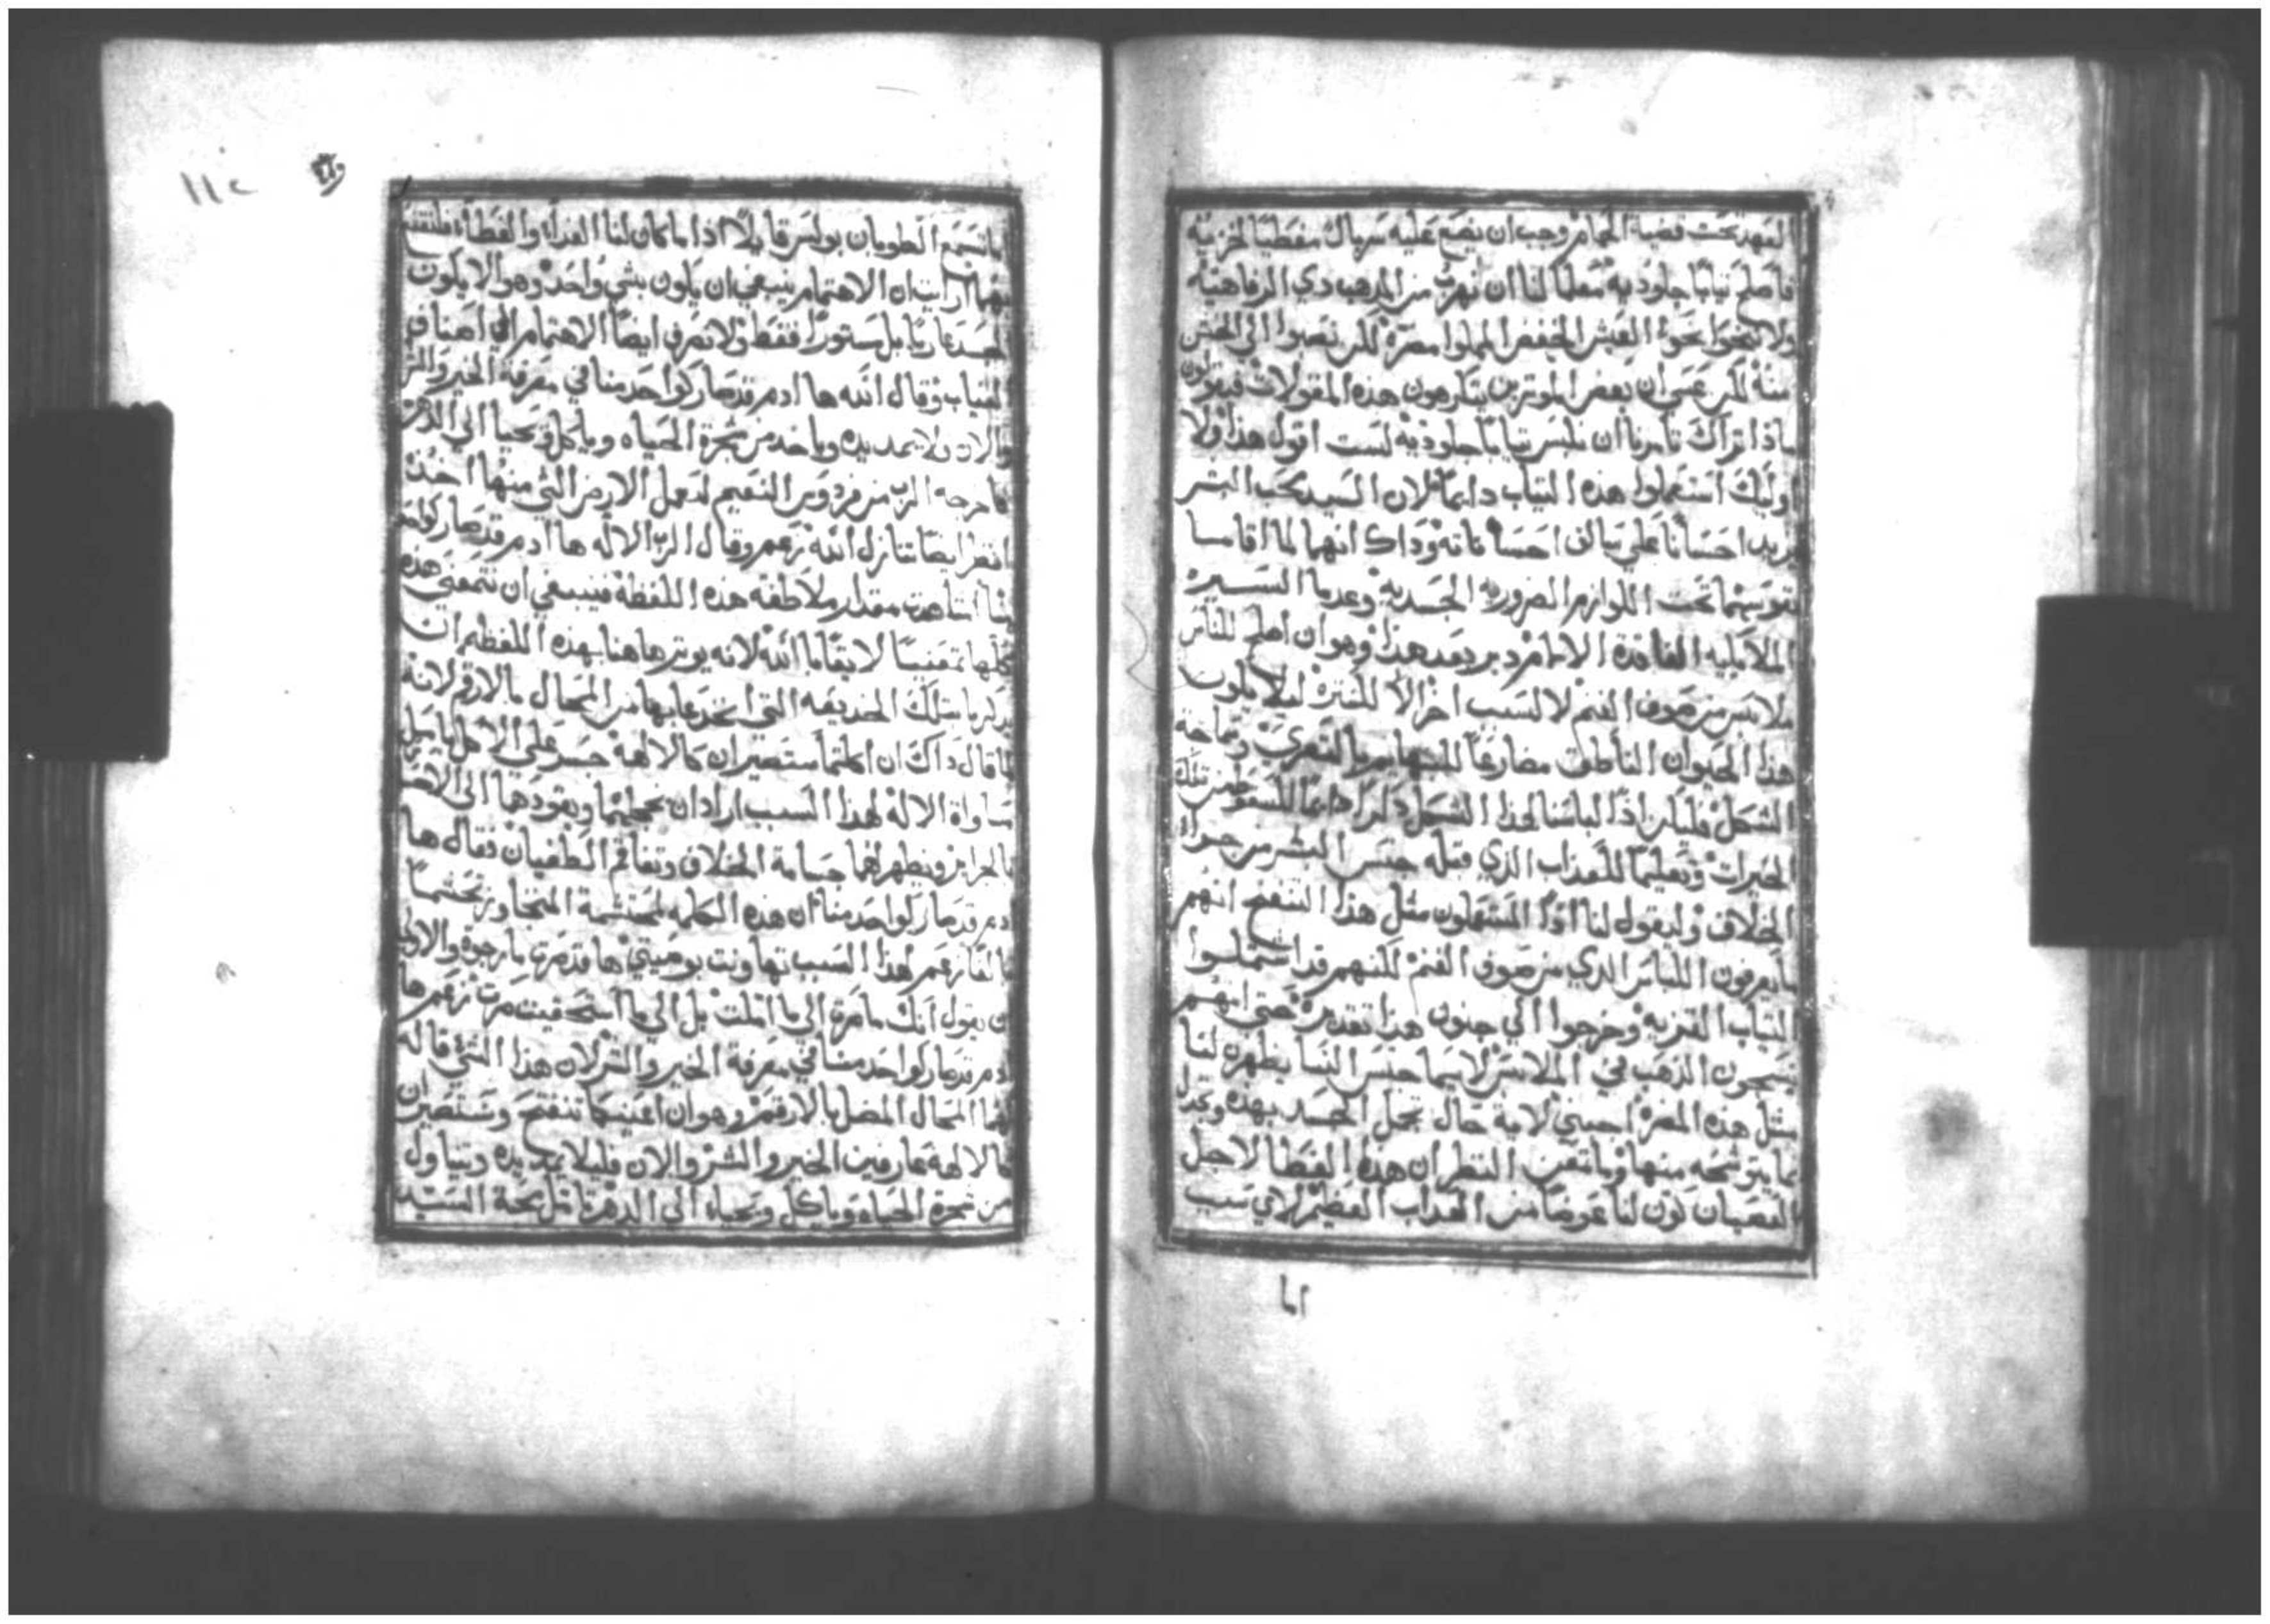 العهد تحت قضية الحمام وجب ان يضع عليه سربال مغطيا لخزيه
فاصلح ثيابا جلوديه معلما لنا ان نهرب من المذهب ذي الرفاهيه
ولا نحوا نحو العيش
منه لكن عسى ان بعض الموترين يتكرهون هذه المقولات فيقولون
ماذا تراك تامرنا ان نلبس ثيابا جلوديه لست اقول هذا ولا
اوليك استعملوا هذه الثياب دايما لان السيد محب البشر
يزيد احسانا على سالف احساناته وذاك انهما لما اقامسا
نفوسهما تحت اللوازم الضروريه الجسديه وعدما السيرة
الملايكيه الفاقدة الالام دبر بعد هذا وهو ان اصلح للناس
ملابس من صوف الغنم لا لسبب اخر الا للستره ليلا يكون
هذا الحيوان الناطق مضارعا للبهايم بالتعري وسماجة
الشكل فليكن اذا لباسنا لهذا الشكل ذكرا دايما للسقوط من تلك
الخيرات وتعليما للعذاب الذي قبله جنس البشر من جرا
الخلاف وليقول لنا اذا المستعملون مثل هذا التنعم انهم
ما يعرفون اللباس الذي من صوف الغنم لكنهم قد اشتملوا
الثياب القزيه وخرجوا الى جنون هذا تقديره حتى انهم
ينسجون الذهب في الملابس لاسيما جنس النسا يظهره لنا
مثل هذه المعزة اجبني لاية حال تجمل الجسد بهذه وتجذل
بما يتوشحه منها وما تمعن النظر ان هذه الغطا لاجل
العصيان كون لنا عوضا من العذاب العظيم لاي سبب
اما
١١٢
اما تسمع الطوبان بولس قايلا اذا ما كان لنا الغذاء والغطاء فلنقتنع
بهما ارايت ان الاهتمام ينبغي ان يكون بشي واحد وهو الا يكون
الجسد عاريا بل مستورا فقط ولا نصرف ايضا الاهتمام الى اصناف
الثياب وقال الله ها ادم قد صار كواحد منا في معرفة الخير والشر
والان ولا يمد يده وياخذ من شجرة الحياه وياكل ويحيا الى الدهر
فاخرجه الرب من فردوس النعيم ليعمل الارض التي منها اخذ
انظر ايضا تنازل الله زعم وقال الرب الاله ها ادم قد صار كواحد
منا اشاهدت مقدار ملاطفه هذه اللفظة فينبغي ان نتمعنى هذه
كلها تمعنيا لايقا بالله لانه يوثر هاهنا بهذه اللفظه ان
يذكرنا بتلك الخديعه التي انخدعا بها من المحال بالارقم لانه
لما قال ذاك ان اكلتما ستصيران كالالهة جسر على الاكل
مساواة الاله لهذا السبب اراد ان يخجلهما ويقودهما الى
بالجرايم ويظهر لهما جسامة الخلاف وتفاقم الطغيان فقال ها
ادم قد صار كواحد منا ان هذه الكلمه لمحتشمة المتجاوز تحتشما
بالغا زعم لهذا السبب تهاونت بوصيتي ها قد صرت ما رجوة والاولى
ان يقول انك ما صرة الى ما املت بل الى ما استحقيت صرت زعم ها
ادم قد صار كواحد منا في معرفة الخير والشر لان هذا الشي قاله
لهما المحال المضل بالارقم وهو ان اعينكما تنفتح وستصيران
كالالهة عارفين الخير والشر والان فليلا يمد يده ويتناول
من شجرة الحياه وياكل ويحياه الى الدهر تامل محبة السيد